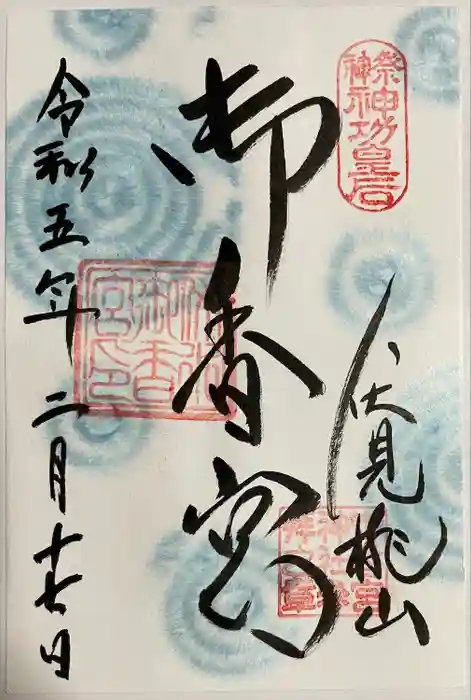 祭神
神功皇后
伏見桃山
御香宮
令和五年 二月十七日